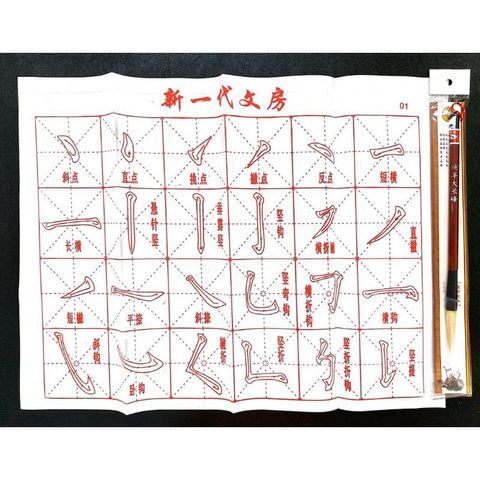 新一代文房
01
斜点
直点
挑点
撇点
反点
短横
长横
悬针竖
垂露竖
竖钩
横折
直撇
短撇
平捺
斜捺
竖弯钩
横折钩
横钩
斜钩
卧钩
撇折
竖折
竖折折钩
竖提